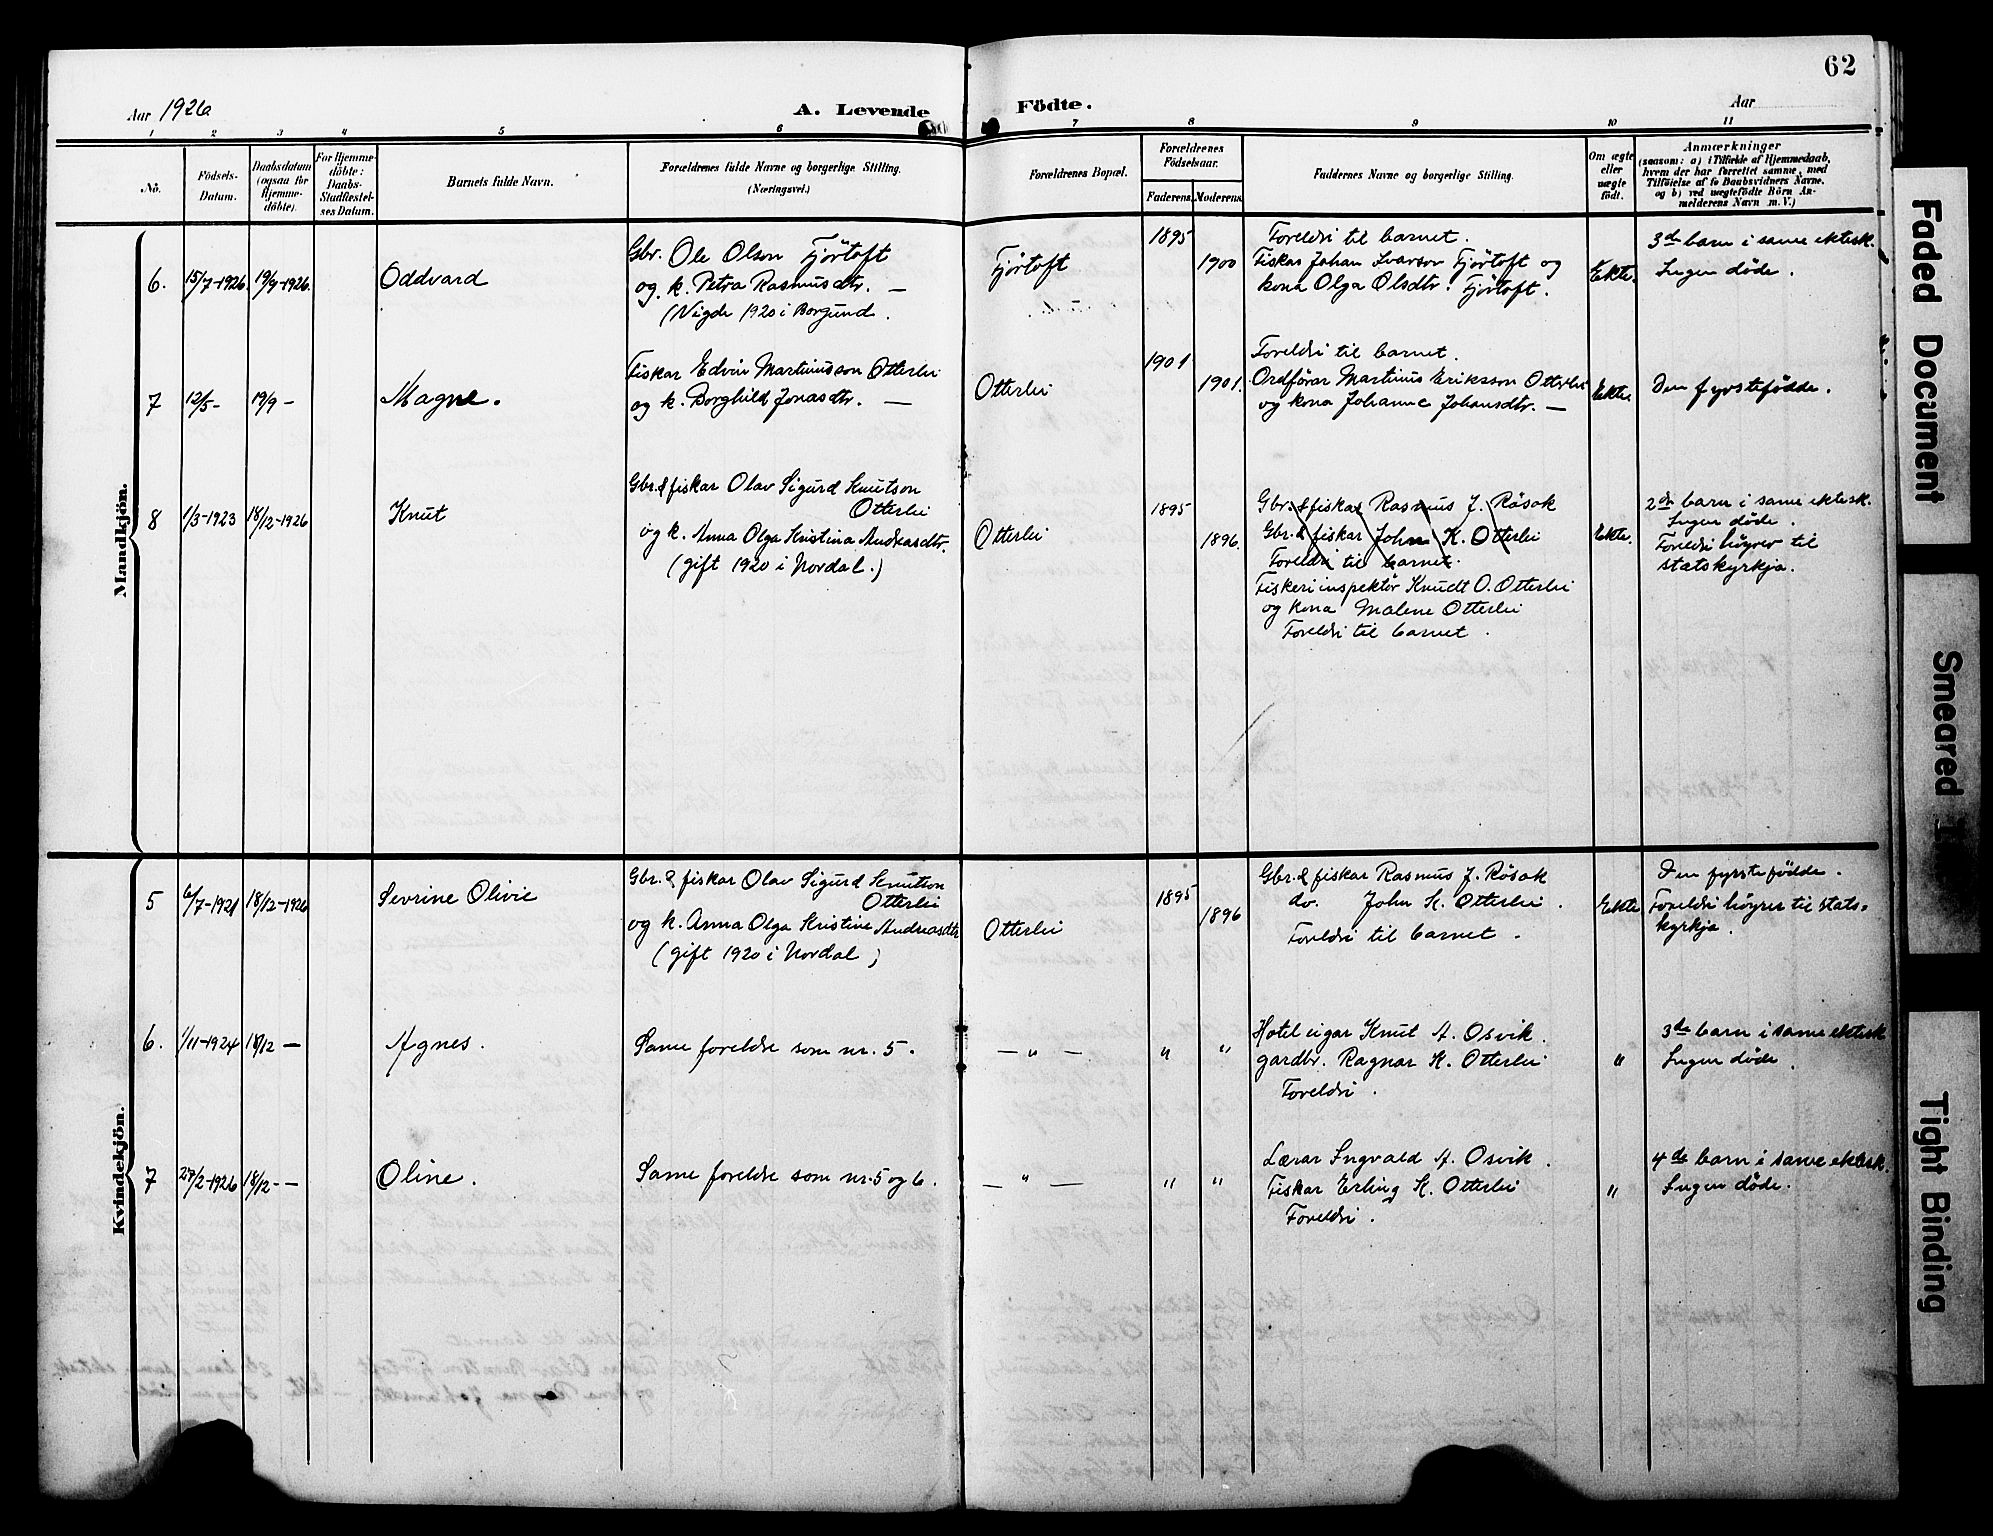 62
Aar 1926
A. Levende
Födte.
Aar
1 2 3 4 5 6 7 8 9 10 11
No.
Födsels-
Datum.
Daabsdatum
(ogsaa for
Hjemme-
döbte).
For Hjemme-
döbte:
Daabs-
Stadfæstel-
ses Datum.
Barnets fulde Navn.
Forældrenes fulde Navne og borgerlige Stilling.
(Næringsvei.)
Forældrenes Bopæl.
Forældrenes
Födselsaar.
Faderens.
Moderens.
Faddernes Navne og borgerlige Stilling.
Om ægte
eller
uægte
födt.
Anmærkninger
(saasom: a) i Tilfælde af Hjemmedaab,
hvem der har forrettet samme, med
Tilföielse af to Daabsvidners Navne,
og b) ved uægtefödte Börn An-
melderens Navn m. V.)
Mandkjön.
6.
15/7-1926.
19/9-1926.
Oddvard
Gbr. Ole Olson Fjörtoft
og k. Petra Rasmusdtr. —
(Vigde 1920 i Borgund.
Fjörtoft
1895
1900
Foreldri til barnet.
Fiskar Johan Ivarson Fjörtoft og
kona Olga Olsdtr. Fjörtoft.
Ekte.
3de barn i same ektesk.
Ingen døde.
7
12/5-
19/9 -
Magne.
Fiskar Edvin Martinusson Otterlei
og k. Borghild Jonasdtr. —
Otterlei
1901
1901.
Foreldri til barnet.
Ordförar Martinus Eriksson Otterlei
og kona Johanne Johansdtr. —
Ekte.
Den fyrstefödde.
8
1/3-1923
18/12-1926
Knut
Gbr. & fiskar Olav Sigurd Knutson
Otterlei
og k. Anna Olga Kristina Andreasdtr.
(gift 1920 i Nordal.)
Otterlei
1895
1896.
Gbr. & fiskar Rasmus J. Røsok
Gbr. & fiskar John K. Otterlei
Foreldri til barnet.
Fiskeriinspektör Knudt O. Otterlei
og kona Malene Otterlei
Foreldri til barnet.
Ekte.
2de barn i same ektesk.
Ingen døde.
Foreldri höyrer til
statskyrkja.
Kvindekjön.
5
6/7-1921
18/12-1926
Sevrine Olivie
Gbr. & fiskar Olav Sigurd Knutson
Otterlei
og k. Anna Olga Kristine Andreasdtr
(gift 1920 i Nordal)
Otterlei
1895
1896
Gbr. & fiskar Rasmus J. Røsok
do. John K. Otterlei.
Foreldri til barnet.
Ekte
Den fyrstefödde.
Foreldri höyrer til stats-
kyrkja.
6.
1/11-1924
18/12 —
Agnes.
Same foreldre som nr. 5.
— " —
"
"
Hotel eigar Knut A. Osvik.
gardbr. Ragnar K. Otterlei
Foreldri.
"
3de barn i same ektesk
Ingen døde.
7
27/2-1926
18/12 - -
Oline.
Same foreldre som nr. 5 og 6.
— " —
"
"
Lærar Ingvald A. Osvik.
Fiskar Erling K. Otterlei
Foreldri.
"
4de barn i same ektesk.
Ingen døde.
Faded Document
Smeared I
Tight Binding